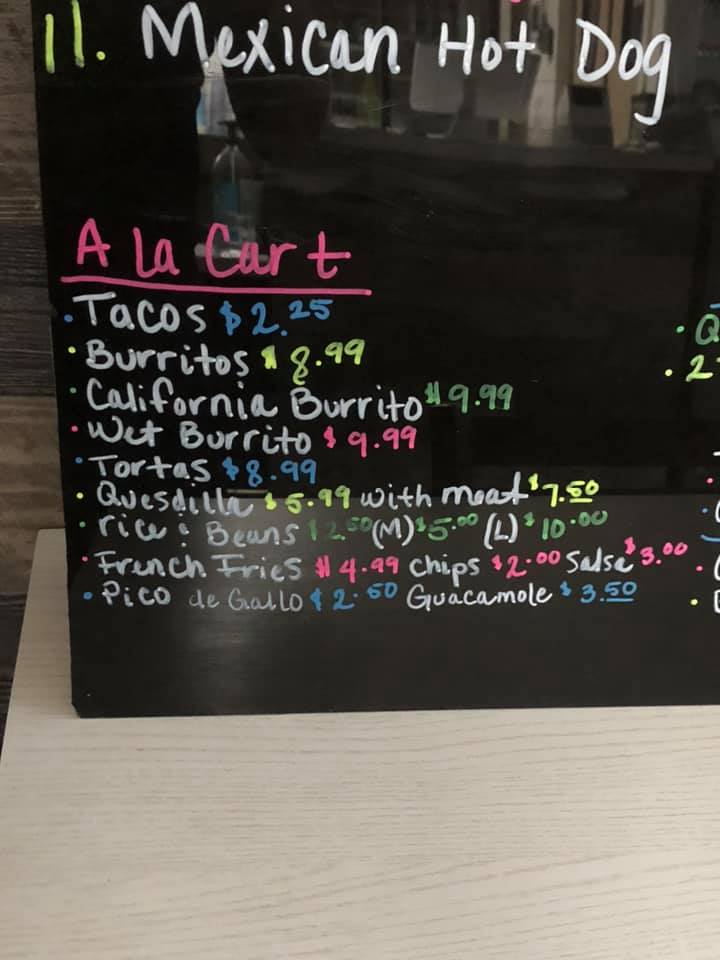 11. Mexican Hot Dog
A La Cart
• Tacos $2.25
• Burritos $8.99
• California Burrito $9.99
• Wet Burrito $9.99
• Tortas $8.99
• Quesdilla $5.99 with meat $7.50
• rice : Beans $2.50 (M) $5.00 (L) $10.00
• French Fries $4.99 Chips $2.00 Salsa $3.00
• Pico de Gallo $2.50 Guacamole $3.50